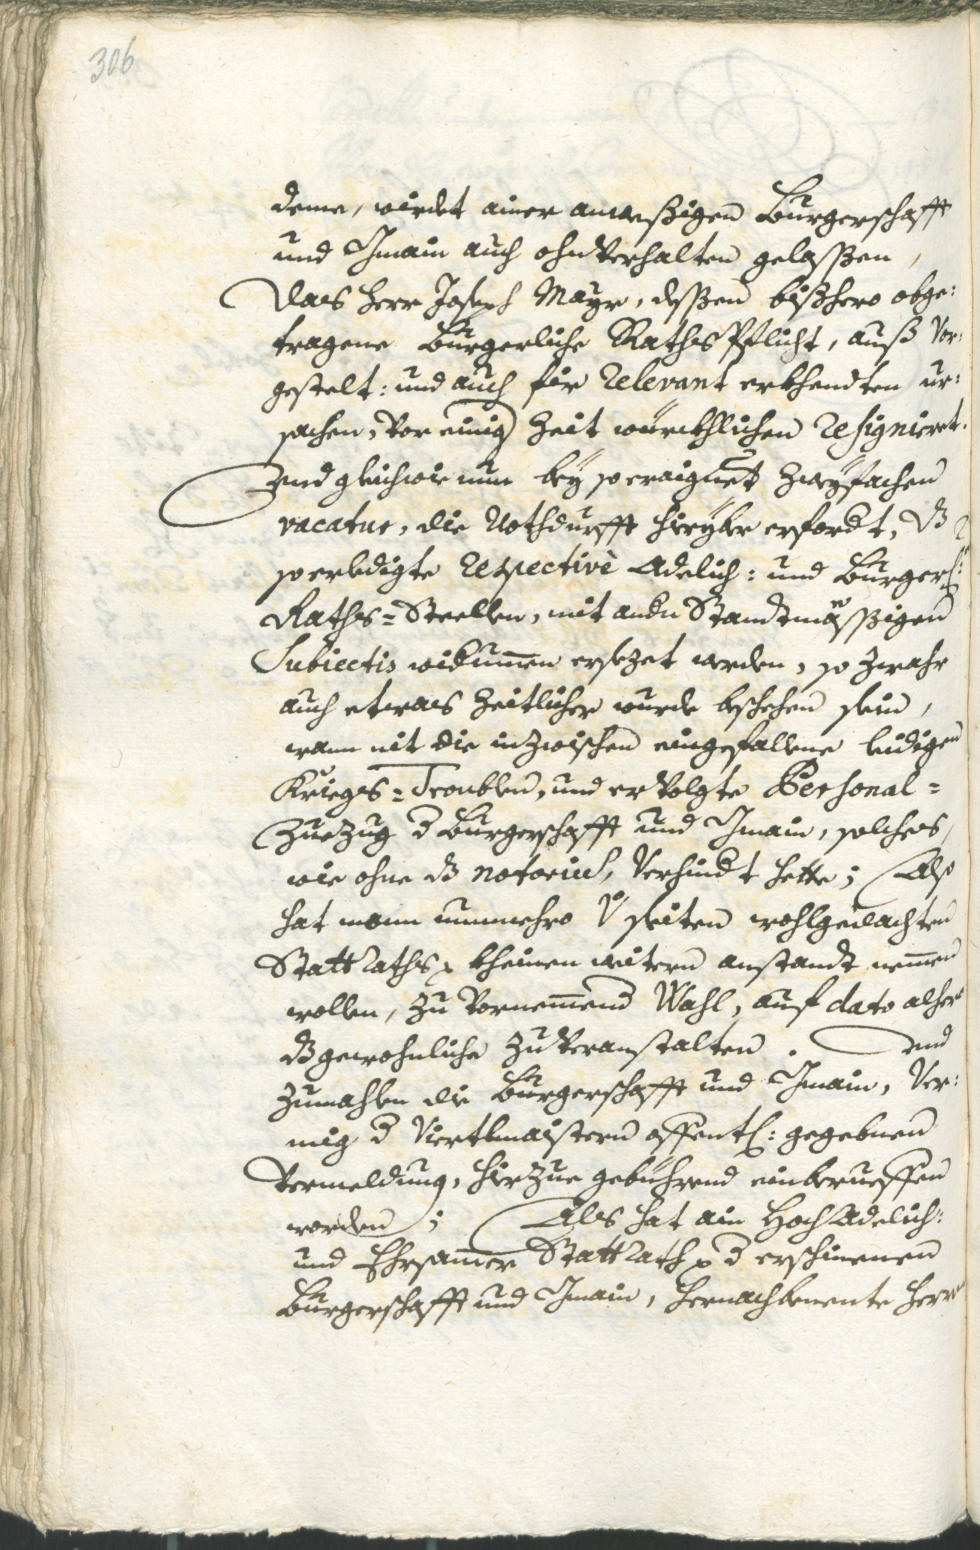 306
deme, wirdet ainer anweßigen Burgerschafft
und Gmain auch ohnverhalten gelaßen,
Das Herr Joseph Mayr, deßen bißhero obge:
tragene Burgerliche RathsPflicht, auß Vor:
gestelt: und auch für relevant erkhendten ur:
sachen, vor einig Zeit würckhlichen resigniert.
Und gleichwie nun bey so eraignet Zweyfachen
vacatur, die Nothdurfft hieryber erfordt, dß
so erledigte respectivè Adelich: und Burgerl:
Raths=Steellen, mit andn Standtmäßigen
Subiectis widumen ersezet werden, so zwahr
auch etwas Zeitlicher wurde beschehen sein,
wann nit die inzwischen eingefallene leidigen
Kriegs=Troublen, und ervolgte Personal=
Zuezug d Burgerschafft und Gmain, solches,
wie ohne dß notorium, verhindt hette; Also
hat mann nunmehro V seiten wohlgedachten
StattRaths khainen weitern anstandt nemen
wollen, zu Vornemend Wahl, auf dato alher
dß gewohnliche zu veranstalten. Und
Zumahlen die Burgerschafft und Gmain, Ver:
mig d Viertlmaistern offentl: gegebnen
Vermeldung, hierzue gebührend einberueffen
worden; Als hat ain HochAdelich:
und Ehrsamer StattRath d erschinenen
Burgerschafft und Gmain, hernachbenente Herrn